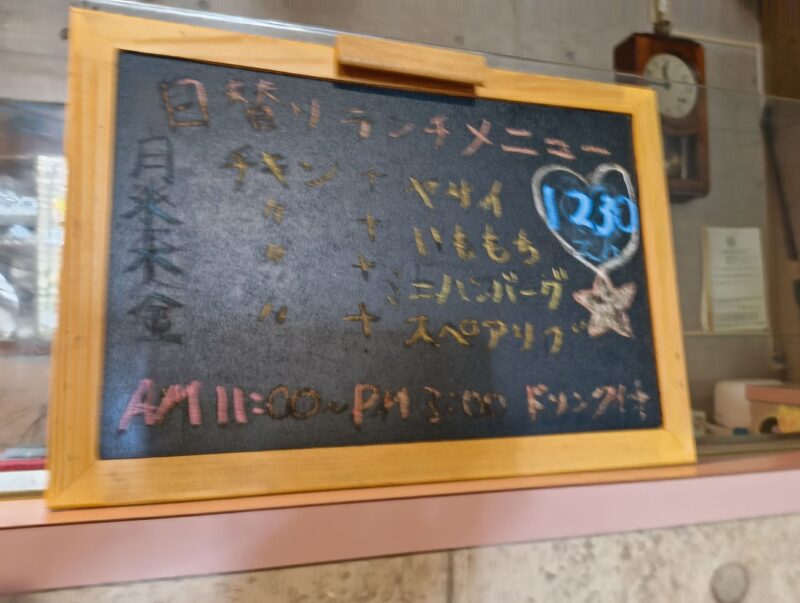 日替りランチメニュー
月 チキン + ヤサイ
水 〃 + いももち
木 〃 + ミニハンバーグ
金 〃 + スペアリブ
1230
エん
AM 11:00~PM 3:00 ドリンク付